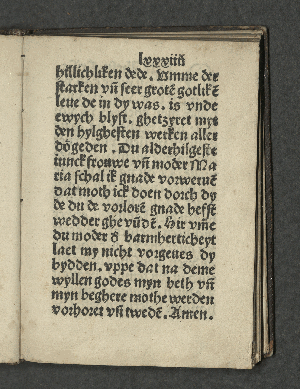 lxxxiiij
billichliken dede. Umme der
starken vñ seer grotē gotlikē
leue de in dy was. is vnde
ewych blyft. ghetzyret myt
den hylghesten werken aller
dogeden. Du alderhilgeste
iunckfrouwe vñ moder Ma
ria schal ik gnade vorweruē
dat moth ick doen dorch dy
de du de vorlorē gnade hefft
wedder gheuūdē. Hir vmē
du moder d barmherticheyt
laet my nicht vorgeues dy
bydden. vppe dat na deme
wyllen godes myn beth vñ
myn beghere mothe werden
vorhoret vñ twedē. Amen.